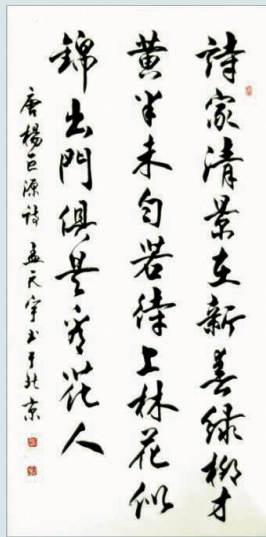 詩家清景在新春綠柳才
黄半未勻若待上林花似
錦出門俱是看花人
唐楊巨源詩 孟天宇書于北京